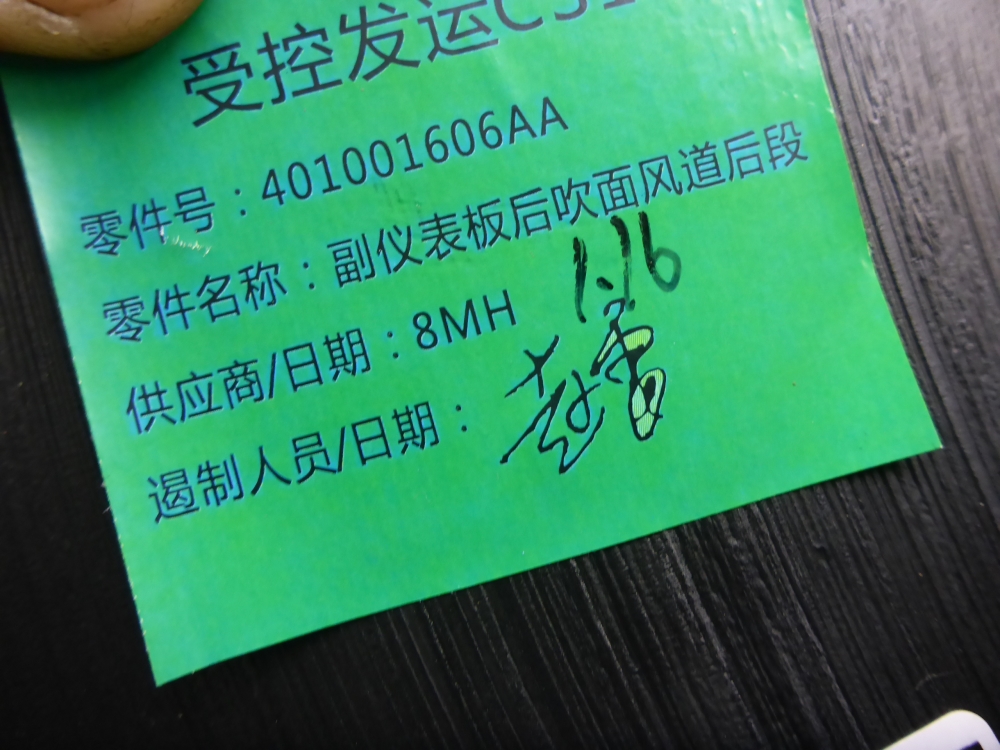 受控发运CS1
零件号：401001606AA
零件名称：副仪表板后吹面风道后段
供应商/日期：8MH 1.16
遏制人员/日期：